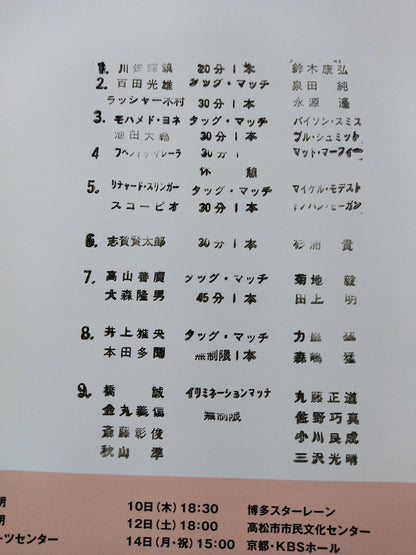 1. 川畑輝鎮 20分1本 鈴木康弘
2. 百田光雄 タッグ・マッチ 泉田 純
ラッシャー木村 30分1本 永源 遙
3. モハメド・ヨネ タッグ・マッチ バイソン・スミス
池田大輔 30分1本 ブル・シュミット
4 30分1 マット・マーフィー
休 憩
5. リチャード・スリンガー タッグ・マッチ マイケル・モデスト
スコーピオ 30分1本 ドノバン・モーガン
6. 志賀賢太郎 30分1本 杉浦 貴
7. 高山善廣 タッグ・マッチ 菊地 毅
大森隆男 45分1本 田上 明
8. 井上雅央 タッグ・マッチ 力皇 猛
本田多聞 無制限1本 森嶋 猛
9. 橋 誠 イリミネーションマッチ 丸藤正道
金丸義信 無制限 佐野巧真
斎藤彰俊 小川良成
秋山 準 三沢光晴
明 10日(木)18:30 博多スターレーン
明 12日(土)18:00 高松市市民文化センター
ーツセンター 14日(月・祝)15:00 京都・KBSホール